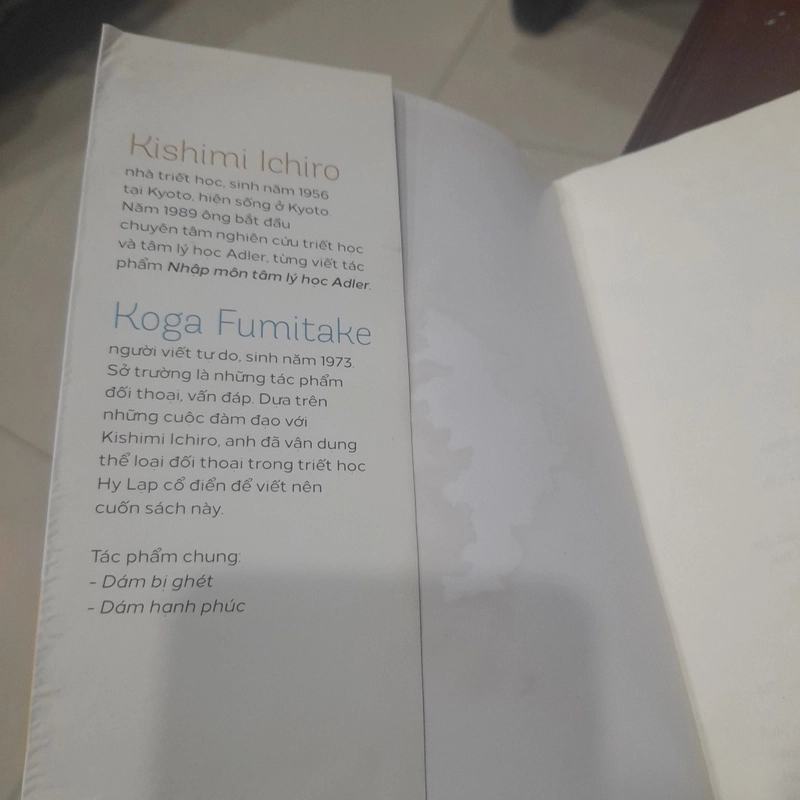 Kishimi Ichiro
nhà triết học, sinh năm 1956
tại Kyoto, hiện sống ở Kyoto.
Năm 1989 ông bắt đầu
chuyên tâm nghiên cứu triết học
và tâm lý học Adler, từng viết tác
phẩm Nhập môn tâm lý học Adler.
Koga Fumitake
người viết tự do, sinh năm 1973.
Sở trường là những tác phẩm
đối thoại, vấn đáp. Dựa trên
những cuộc đàm đạo với
Kishimi Ichiro, anh đã vận dụng
thể loại đối thoại trong triết học
Hy Lạp cổ điển để viết nên
cuốn sách này.
Tác phẩm chung:
- Dám bị ghét
- Dám hạnh phúc